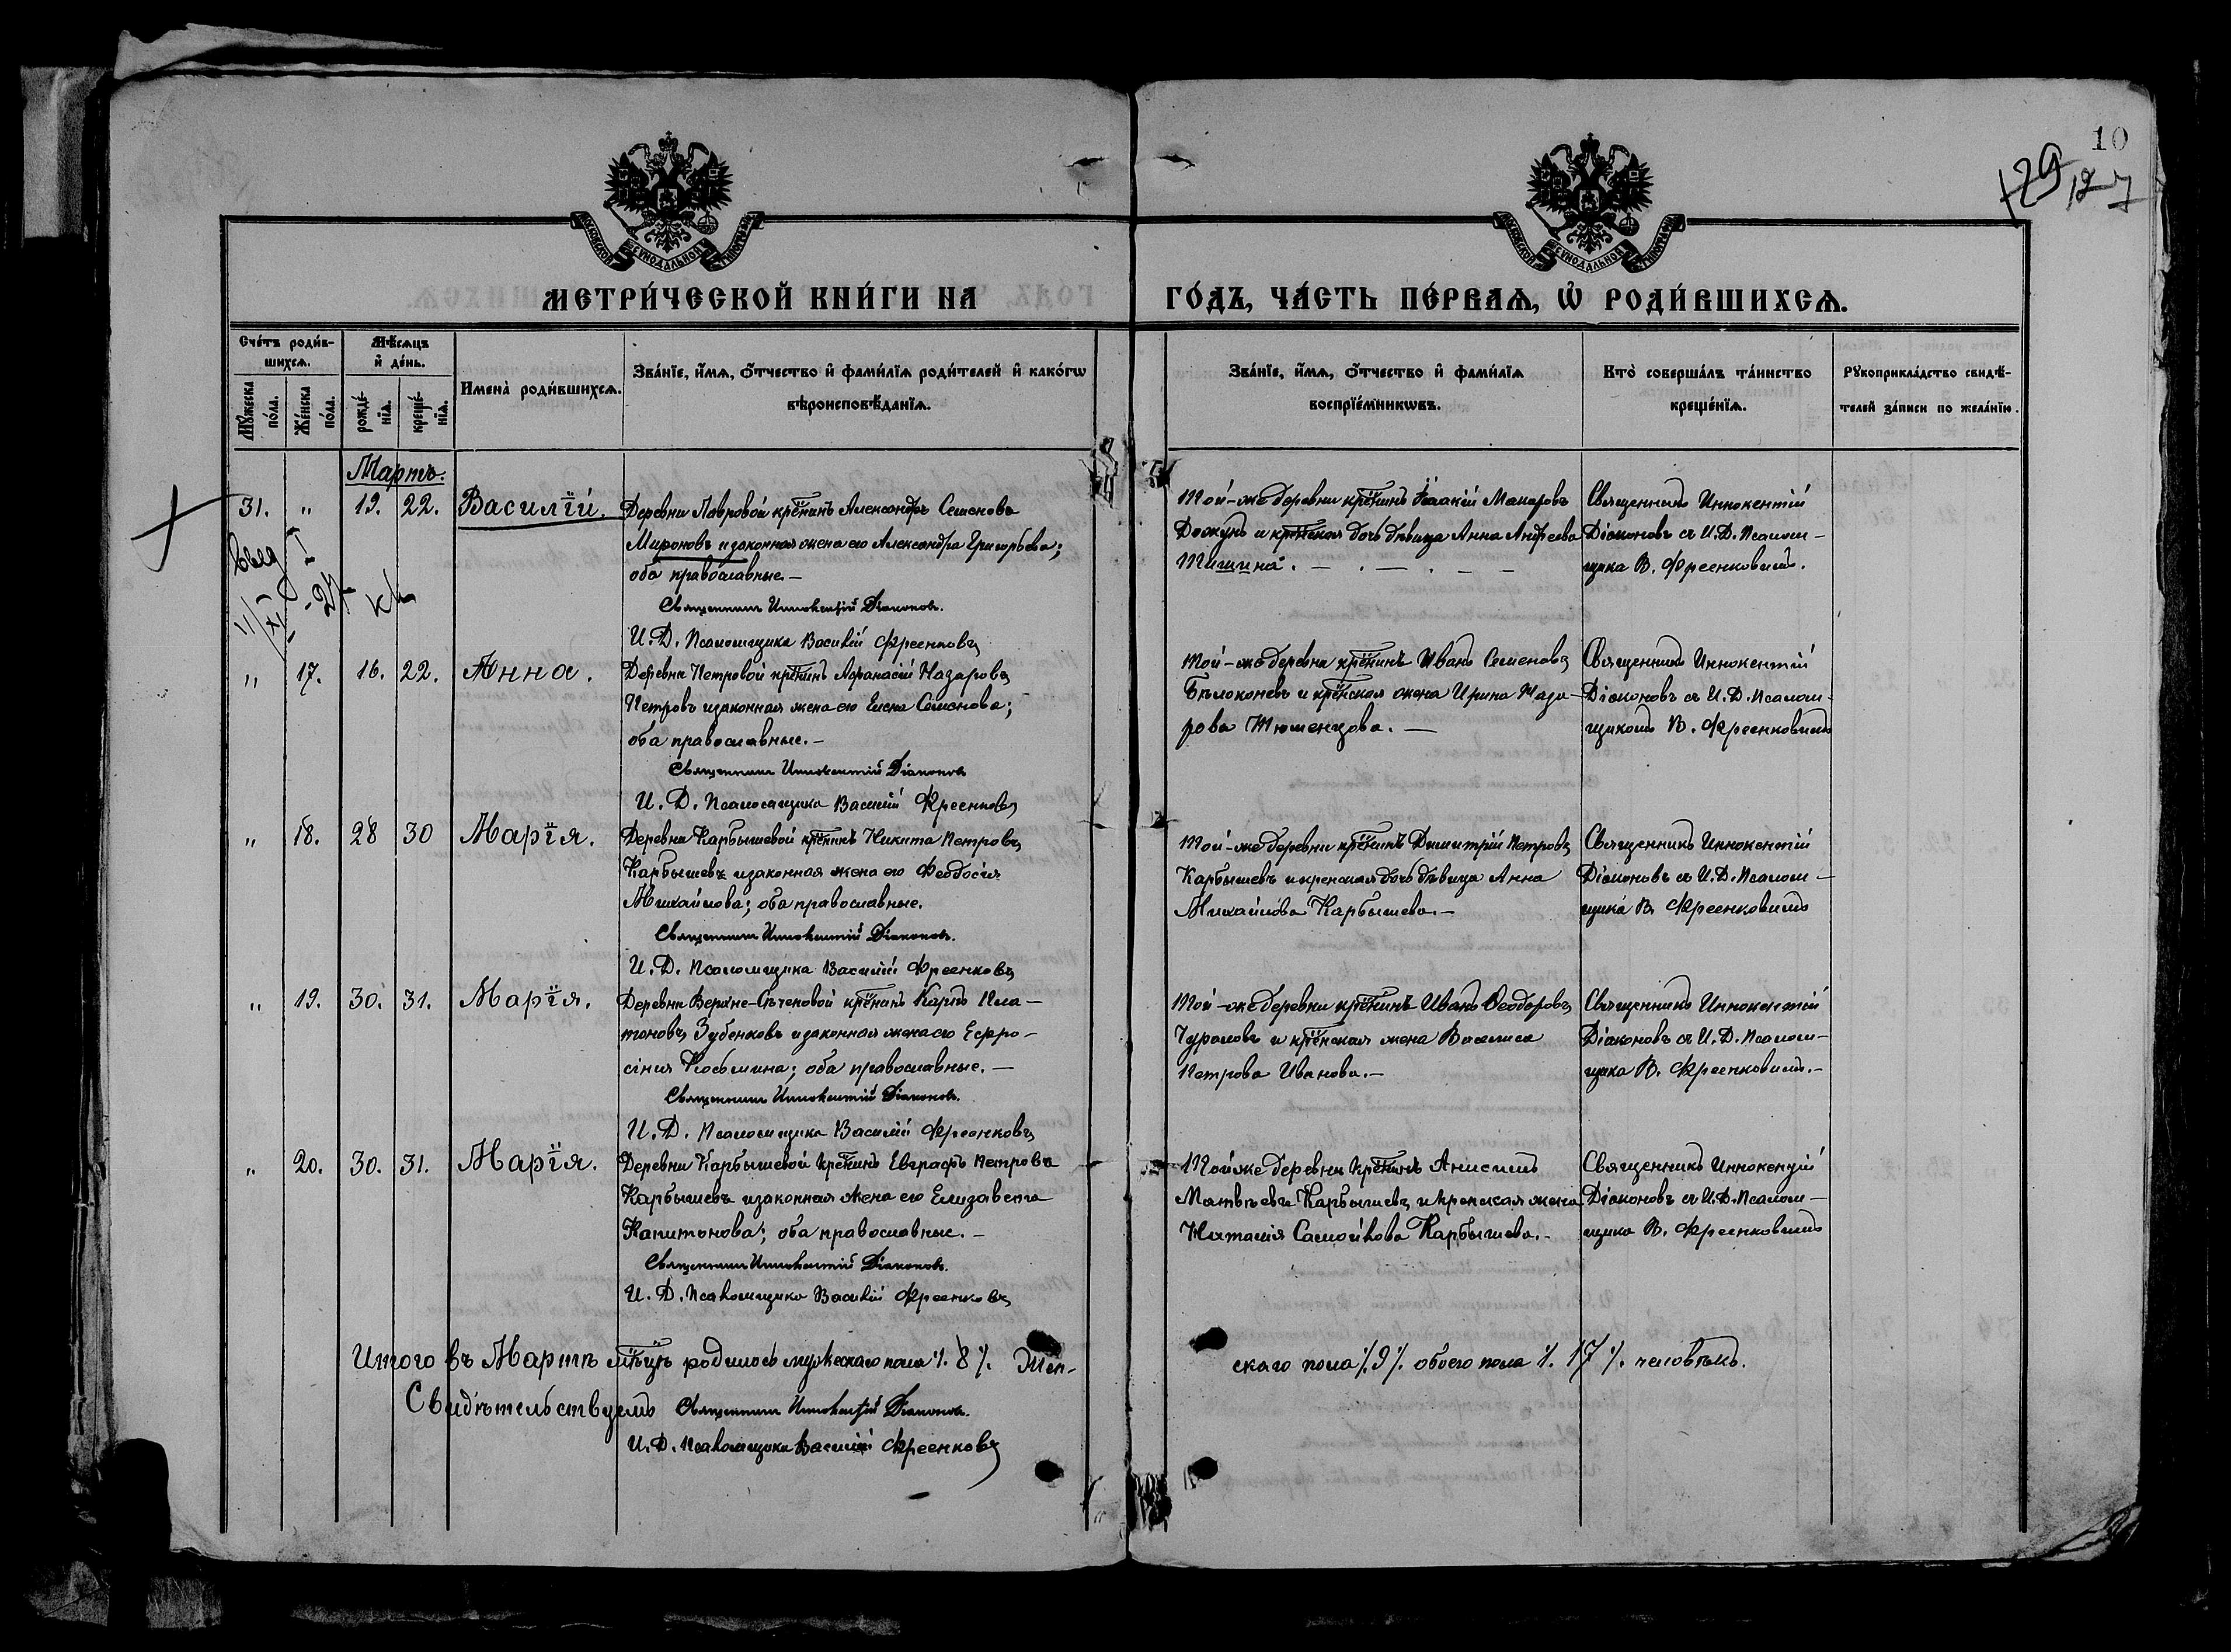 10
129 127
МОСКОВСКОЙ СѴНОДАЛЬНОЙ ТИПОГРАФІИ
МОСКОВСКОЙ СѴНОДАЛЬНОЙ ТИПОГРАФІИ
МЕТРИ́ЧЕСКОЙ КНИ́ГИ НА ГО́ДЪ, ЧА́СТЬ ПЕ́РВАѦ, Ѡ҆ РОДИ́ВШИХСѦ.
Сче́тъ роди́в-
шихсѧ.
Мꙋ́жеска по́ла.
Же́нска по́ла.
Мѣ́сѧцъ
и҆ де́нь.
рожде́-нїѧ.
креще́-нїѧ.
Имена̀ роди́вшихсѧ.
Зва́нїе, и҆́мѧ, ѻ҆́тчество и҆ фами́лїѧ роди́телей и҆ како́гѡ
вѣроисповѣ́данїѧ.
Зва́нїе, и҆́мѧ, ѻ҆́тчество и҆ фами́лїѧ
воспрїе́мникѡвъ.
Кто̀ соверша́лъ та́инство
креще́нїѧ.
Рꙋкоприкла́дство свидѣ́-
телей за́писи по жела́нїю.
Мартъ.
31. " 19. 22. Василій. Деревни Лавровой кр̃нинъ Александръ Семеновъ
Мироновъ и законная жена его Александра Григорьева;
оба православные. –
Священникъ Иннокентій Діаконовъ.
И. Д. Псаломщика Василій Фреенковъ
Той-же деревни кр̃нинъ Ісаакій Макаровъ
и кр̃нская дочь дѣвица Анна Андреева
Тишина. –
Священникъ Иннокентій
Діаконовъ съ И. Д. Псалом-
щика В. Фреенковымъ.
" 17. 16. 22. Анна. Деревни Петровой кр̃нинъ Афанасій Назаровъ
Петровъ и законная жена его Елена Семенова;
оба православные. –
Священникъ Иннокентій Діаконовъ
И. Д. Псаломщика Василій Фреенковъ
Той-же деревни кр̃нинъ Иванъ Семеновъ
Бѣлоконевъ и кр̃нская жена Ирина Наза-
рова Тюменцова. –
Священникъ Иннокентій
Діаконовъ съ И. Д. Псалом-
щикомъ В. Фреенковымъ
" 18. 28 30 Марія. Деревни Карбышевой кр̃нинъ Никита Петровъ
Карбышевъ и законная жена его Феодосія
Михайлова; оба православные.
Священникъ Иннокентій Діаконовъ.
И. Д. Псаломщика Василій Фреенковъ
Той-же деревни кр̃нинъ Димитрій Петровъ
Карбышевъ и кренская дочь дѣвица Анна
Михайлова Карбышева. –
Священникъ Иннокентій
Діаконовъ съ И. Д. Псалом-
щика В. Фреенковымъ
" 19. 30. 31. Марія. Деревни Верхне-Сѣченовой кр̃нинъ Карпъ Пла-
тоновъ Зубенковъ и законная жена его Евфро-
сінія Косьмина; оба православные. –
Священникъ Иннокентій Діаконовъ.
И. Д. Псаломщика Василій Фреенковъ
Той-же деревни кр̃нинъ Иванъ Ѳеодоровъ
Чураловъ и кр̃нская жена Василиса
Петрова Иванова. –
Священникъ Иннокентій
Діаконовъ съ И. Д. Псалом-
щика В. Фреенковымъ. –
" 20. 30. 31. Марія. Деревни Карбышевой кр̃нинъ Евграфъ Петровъ
Карбышевъ и законная жена его Елизавета
Капитонова; оба православные. –
Священникъ Иннокентій Діаконовъ.
И. Д. Псаломщика Василій Фреенковъ
Той же деревни кр̃нинъ Анисимъ
Матвѣевъ Карбышевъ и кренская жена
Наталія Самойлова Карбышева. –
Священникъ Иннокентій
Діаконовъ съ И. Д. Псалом-
щика В. Фреенковымъ
Итого въ Мартѣ мѣ̃цѣ родилось мужескаго пола ٪ 8 ٪. Жен- скаго пола ٪ 9 ٪. обоего пола ٪. 17 ٪. человѣкъ.
Свидѣтельствуемъ Священникъ Иннокентій Діаконовъ.
И. Д. Псаломщика Василій Фреенковъ